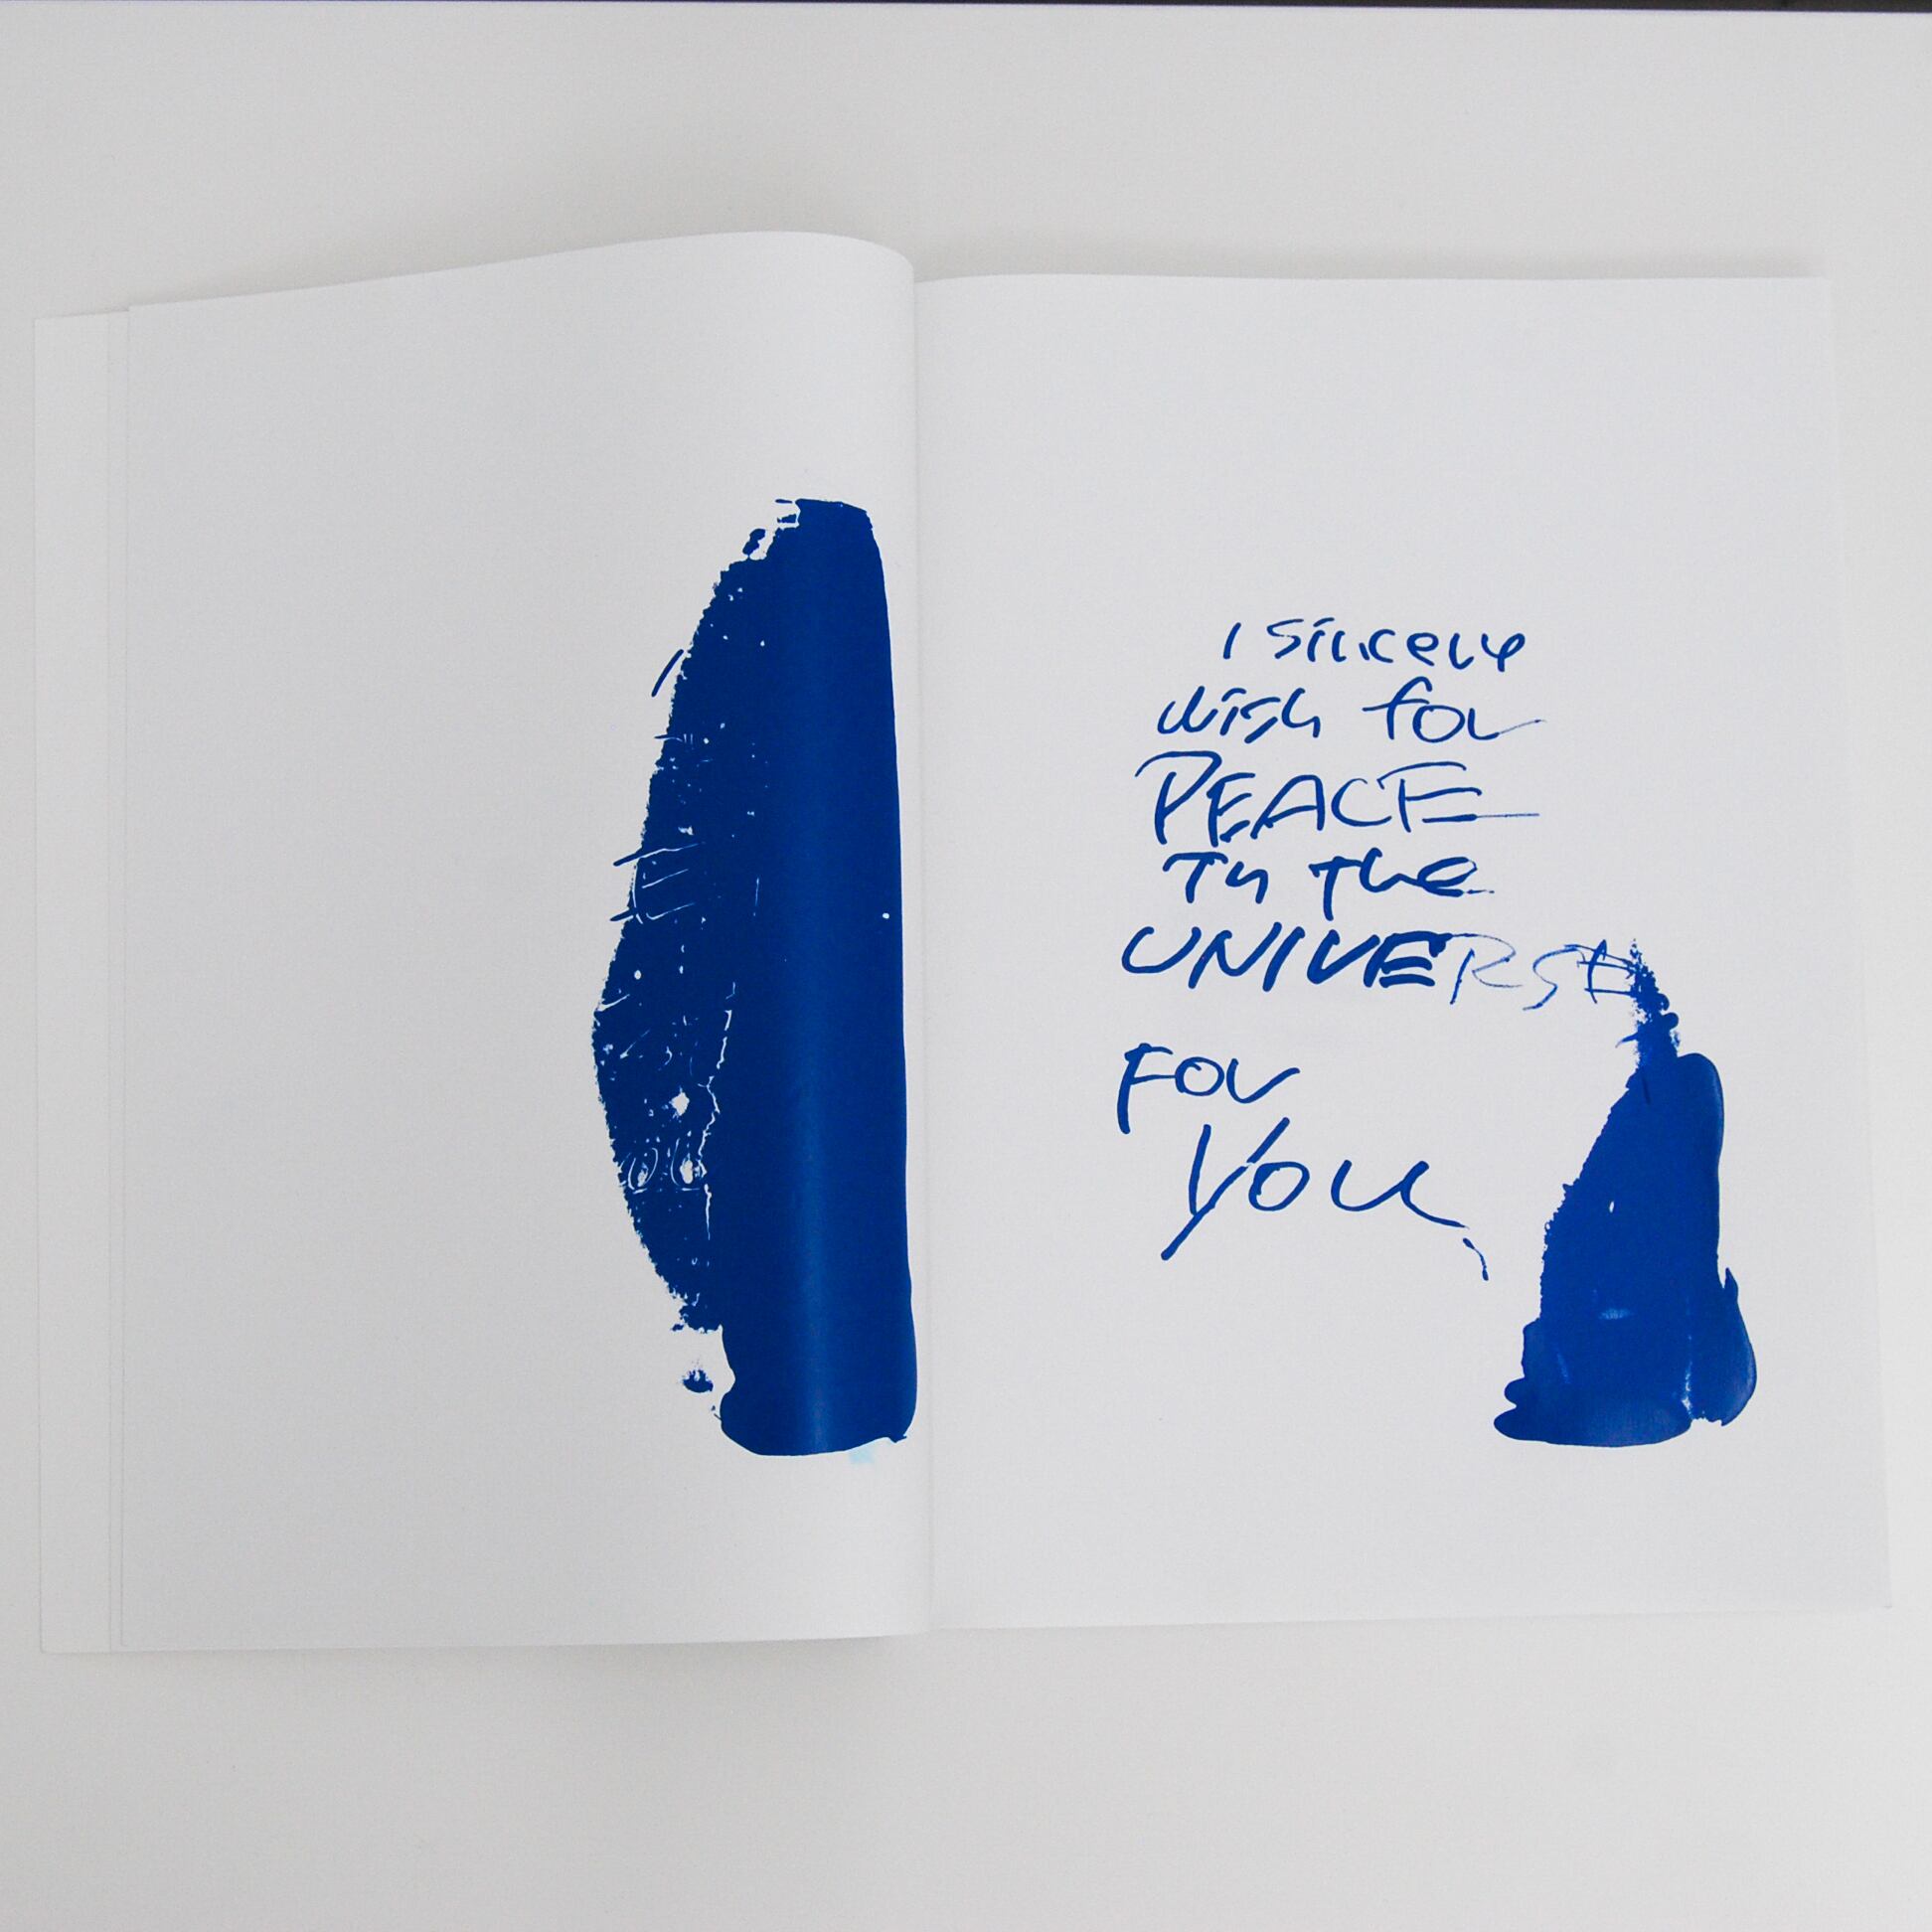 I sincerly
wish for
PEACE
In the
UNIVERSE
FOR
YOU